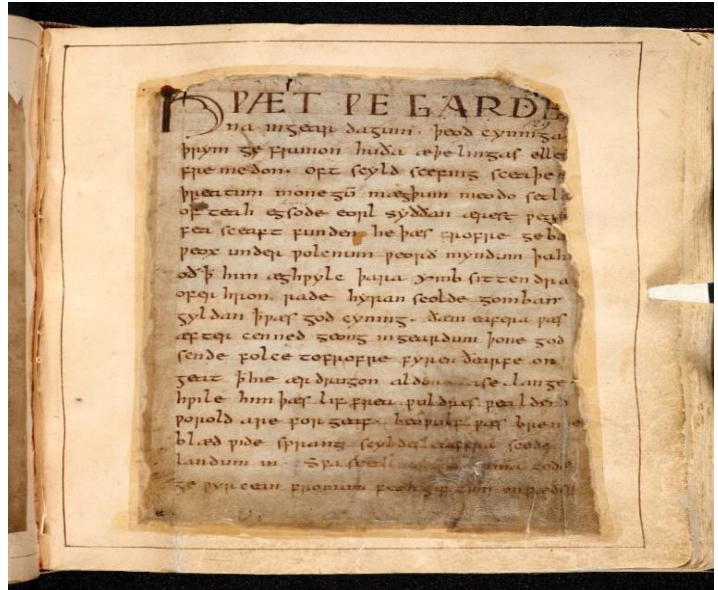 HǷÆT ǷE GARDE
na ingear dagum. þeod cyninga
þrym ge frunon huða æþelingas elle
fre medon. oft scyld scefing sceaþe
þreatum monegū mægþum meodo setl
of teah egsode eorl syððan ærest ƿear
fea sceaft funden he þæs frofre geba
ƿeox under ƿolcnum ƿeorð myndum þah
oð ꝥ him æghƿylc þara ymb sittendra
ofer hron rade hyran scolde gomban
gyldan ꝥ ƿæs god cyning. ðæm eafera ƿæs
æfter cenned geong in geardum þone god
sende folce tofrofre fyren ðearfe on
geat ꝥ hie ær drugon aldor ase. lange
hƿile him þæs lif frea ƿuldres ƿealdend
ƿorold are for geaf. beoƿulf ƿæs breme
blæd ƿide sprang scyldes eafera scede
landum in. Sƿa sceal guma gode
ge ƿyrcean fromum feoh giftum on fæder